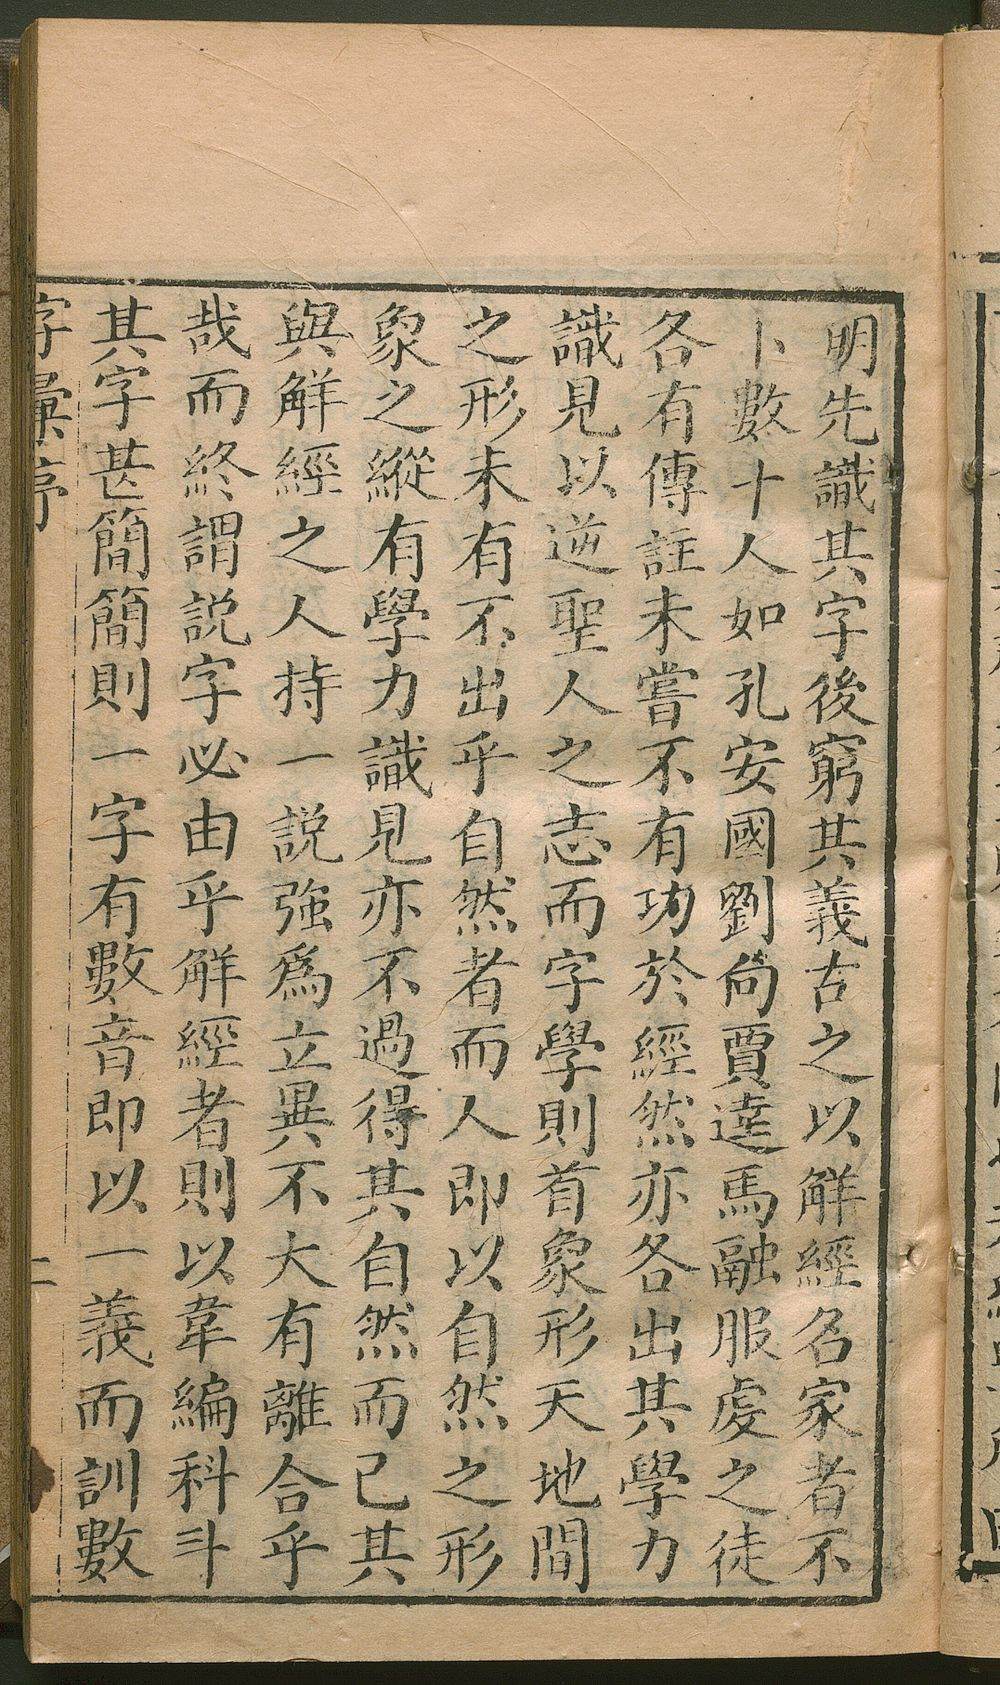 明先識其字後窮其義古之以解經名家者不
卜數十人如孔安國劉向賈逵馬融服虔之徒
各有傳註未嘗不有功於經然亦各出其學力
識見以逆聖人之志而字學則首象形天地間
之形未有不出乎自然者而人即以自然之形
象之縱有學力識見亦不過得其自然而已其
與解經之人持一説強爲立異不大有離合乎
哉而終謂説字必由乎解經者則以韋編科斗
其字甚簡簡則一字有數音即以一義而訓數
字彙序
二